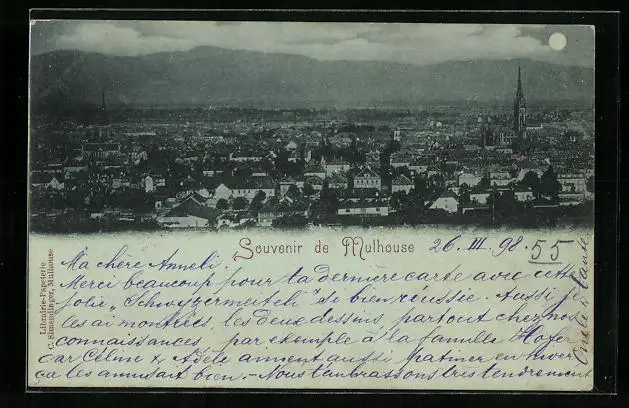 Souvenir de Mulhouse 26. III. 98. 55
Librairie-Papeterie
C. Simmedinger, Mulhouse
Ma chère Anneli.
Merci beaucoup pour ta dernière carte avec cette
jolie „Schwyzermeiteli" si bien réussie. Aussi je
les ai montrées, les deux dessins, partout chez nos
connaissances, par exemple à la famille Hofer
car Céline & Adèle aiment aussi patiner en hiver
ça les amusait bien. - Nous t'embrassons très tendrement
Oncle & tante